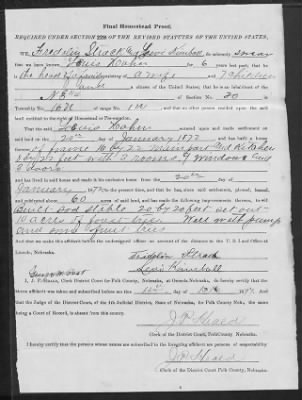 Final Homestead Proof.
REQUIRED UNDER SECTION 2291 OF THE REVISED STATUTES OF THE UNITED STATES,
We Fredolin Strack & Lewis Kimball do solemnly swear
that we have known Louis Hahn for 6 years last past; that he
the head of a family consisting of a wife and 7 children
a citizen of the United States; that he is an inhabitant of the
of Section No. 20 in
Township No. 16 N of Range No. 1 W and that no other person resided upon the said
land entitled to the right of Homestead or Pre-emption.
That the said Louis Hahn entered upon and made settlement on
said land on the 20th day of January 1872 and has built a house
of frame 16 by 22 main part and Kitchen
feet with 3 rooms 9 windows and
3 doors
and has lived in said house and made it his exclusive home from the 20th day of
January 1872 to the present time, and that he has, since said settlement, plowed, fenced,
and cultivated about 60 acres of said land, and has made the following improvements thereon, to wit:
Built Sod Stable 20 by 20 feet set out
10 acres of forest trees Well with pump
and some fruit trees
Lincoln, Nebraska.
Fredolin Strack
Lewis Kimball
I, J. P. Heald, Clerk District Court for Polk County, Nebraska, at Osceola, Nebraska, do hereby certify that the
above affidavit was taken and subscribed before me this day of
And that the Judge of the District Court, of the 4th Judicial District, State of Nebraska, and for Polk County, Nebraska, the same
being a Court of Record, is absent from this county.
J. P. Heald
Clerk of the District Court Polk County, Nebraska.
I hereby certify that the persons whose names are subscribed to the foregoing affidavit are persons of respectability.
J. P. Heald
Clerk of the District Court Polk County, Nebraska.